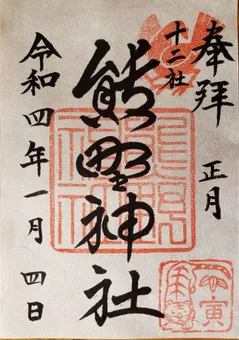 奉拝
正月
十二社
熊野神社
令和四年一月四日
寅